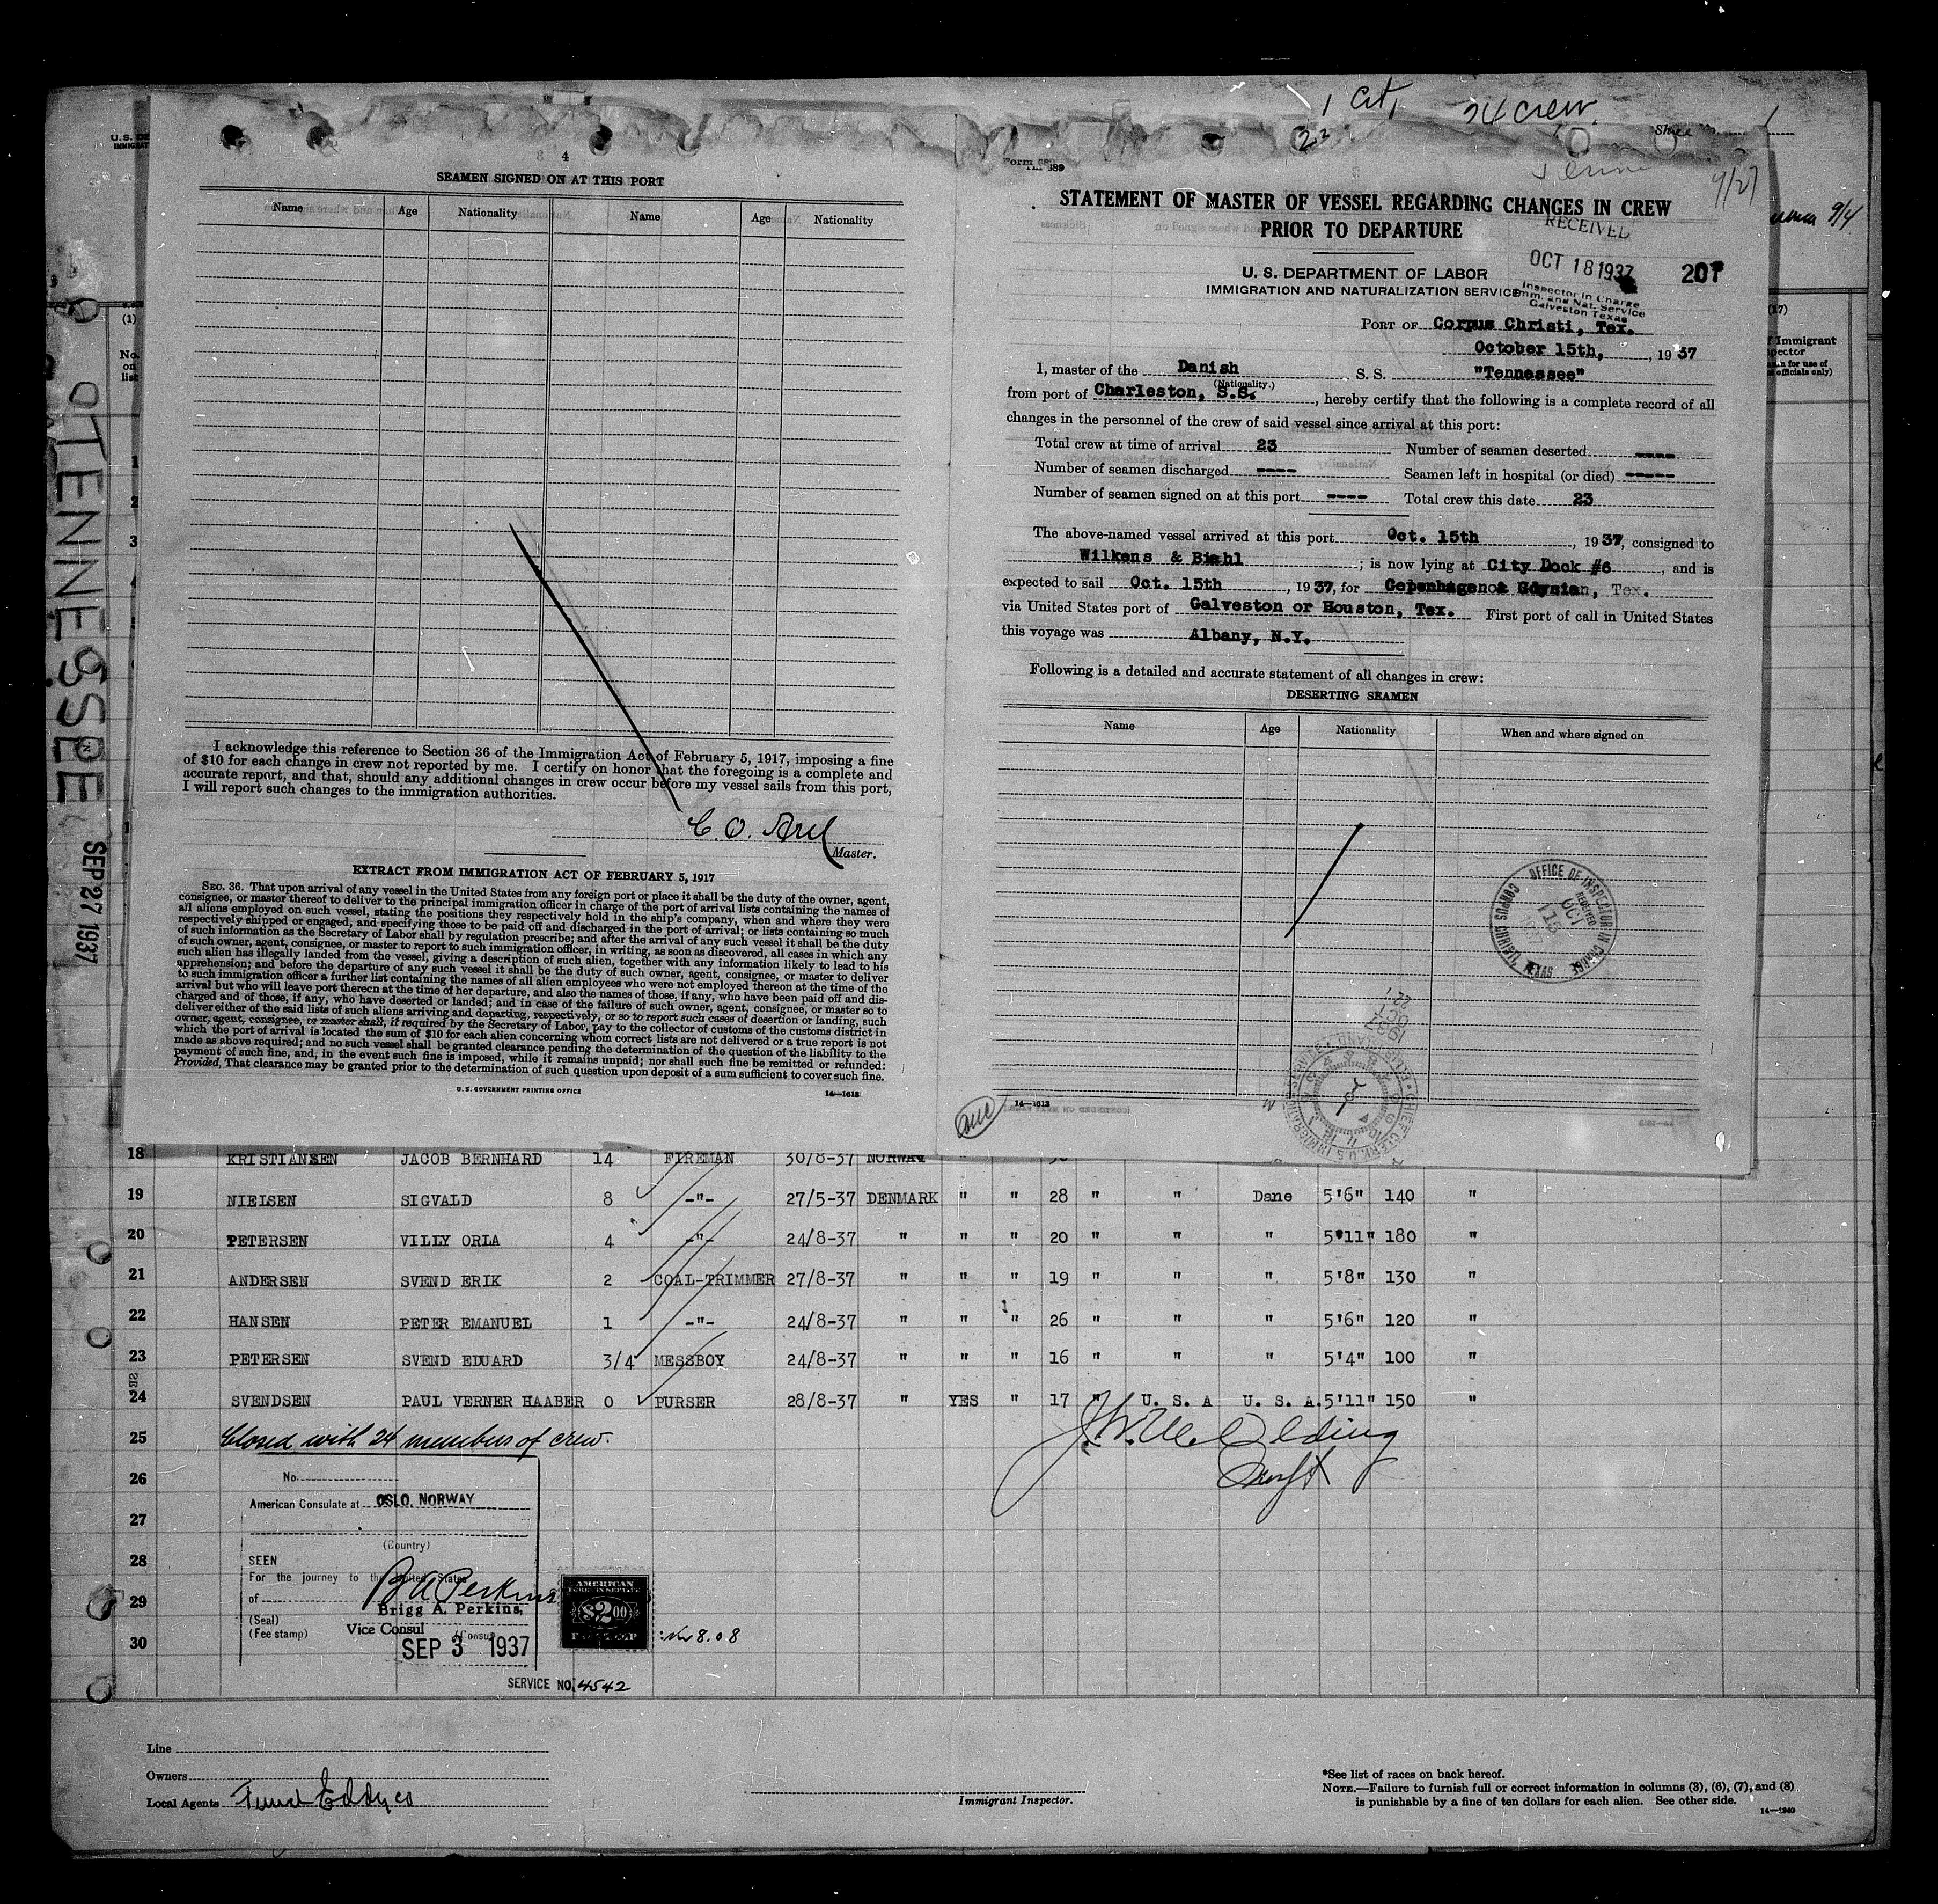 1 Cit,
24 crew.
23
Form 689
9/27
9/4
4
SEAMEN SIGNED ON AT THIS PORT
Name Age Nationality Name Age Nationality
I acknowledge this reference to Section 36 of the Immigration Act of February 5, 1917, imposing a fine
of $10 for each change in crew not reported by me. I certify on honor that the foregoing is a complete and
accurate report, and that, should any additional changes in crew occur before my vessel sails from this port,
I will report such changes to the immigration authorities.
Master.
EXTRACT FROM IMMIGRATION ACT OF FEBRUARY 5, 1917
SEC. 36. That upon arrival of any vessel in the United States from any foreign port or place it shall be the duty of the owner, agent,
consignee, or master thereof to deliver to the principal immigration officer in charge of the port of arrival lists containing the names of
all aliens employed on such vessel, stating the positions they respectively hold in the ship's company, when and where they were
respectively shipped or engaged, and specifying those to be paid off and discharged in the port of arrival; or lists containing so much
of such information as the Secretary of Labor shall by regulation prescribe; and after the arrival of any such vessel it shall be the duty
of such owner, agent, consignee, or master to report to such immigration officer, in writing, as soon as discovered, all cases in which any
such alien has illegally landed from the vessel, giving a description of such alien, together with any information likely to lead to his
apprehension; and before the departure of any such vessel it shall be the duty of such owner, agent, consignee, or master to deliver
to such immigration officer a further list containing the names of all alien employees who were not employed thereon at the time of the
arrival but who will leave port thereon at the time of her departure, and also the names of those, if any, who have been paid off and dis-
charged and of those, if any, who have deserted or landed; and in case of the failure of such owner, agent, consignee, or master so to
deliver either of the said lists of such aliens arriving and departing, respectively, or so to report such cases of desertion or landing, such
owner, agent, consignee, or master shall, if required by the Secretary of Labor, pay to the collector of customs of the customs district in
which the port of arrival is located the sum of $10 for each alien concerning whom correct lists are not delivered or a true report is not
made as above required; and no such vessel shall be granted clearance pending the determination of the question of the liability to the
payment of such fine, and, in the event such fine is imposed, while it remains unpaid; nor shall such fine be remitted or refunded:
Provided, That clearance may be granted prior to the determination of such question upon deposit of a sum sufficient to cover such fine.
U. S. GOVERNMENT PRINTING OFFICE 14—1613
STATEMENT OF MASTER OF VESSEL REGARDING CHANGES IN CREW
PRIOR TO DEPARTURE
RECEIVED
OCT 18 1937
Inspector in Charge
Imm. and Nat. Service
Galveston Texas
207
U. S. DEPARTMENT OF LABOR
IMMIGRATION AND NATURALIZATION SERVICE
PORT OF Corpus Christi, Tex.
October 15th, , 1937
I, master of the Danish S. S. "Tennessee"
(Nationality.)
from port of Charleston, S.S. , hereby certify that the following is a complete record of all
changes in the personnel of the crew of said vessel since arrival at this port:
Total crew at time of arrival 23 Number of seamen deserted ----
Number of seamen discharged ---- Seamen left in hospital (or died) -----
Number of seamen signed on at this port ---- Total crew this date 23
The above-named vessel arrived at this port Oct. 15th , 1937, consigned to
Wilkens & Biehl ; is now lying at City Dock #6 , and is
expected to sail Oct. 15th , 1937, for Copenhagen Gdynian, Tex.
via United States port of Galveston or Houston, Tex. First port of call in United States
this voyage was Albany, N.Y.
Following is a detailed and accurate statement of all changes in crew:
DESERTING SEAMEN
Name Age Nationality When and where signed on
OFFICE OF INSPECTOR IN CHARGE
RECEIVED
OCT
CORPUS CHRISTI, TEXAS
1937
OCT
14—1613
TENNESSEE
SEP 27 1937
(1)
No.
on
list
1
2
3
18 KRISTIANSEN JACOB BERNHARD 14 FIREMAN 30/8-37 NORWAY
19 NIELSEN SIGVALD 8 -"- 27/5-37 DENMARK " " 28 " " Dane 5'6" 140 "
20 PETERSEN VILLY ORLA 4 -"- 24/8-37 " " " 20 " " " 5'11" 180 "
21 ANDERSEN SVEND ERIK 2 COAL-TRIMMER 27/8-37 " " " 19 " " " 5'8" 130 "
22 HANSEN PETER EMANUEL 1 -"- 24/8-37 " " " 26 " " " 5'6" 120 "
23 PETERSEN SVEND EDUARD 3/4 MESSBOY 24/8-37 " " " 16 " " " 5'4" 100 "
24 SVENDSEN PAUL VERNER HAABER 0 PURSER 28/8-37 " YES " 17 " U. S. A U. S. A. 5'11" 150 "
25 Closed with 24 members of crew.
26
27
28
29
30
No.
American Consulate at OSLO, NORWAY
(Country)
SEEN
For the journey to the United States
of
B A Perkins
Brigg A. Perkins,
(Seal)
(Fee stamp)
Vice Consul
SEP 3 1937
AMERICAN
FOREIGN SERVICE
$2.00
8.08
SERVICE NO. 4542
Line
Owners
Local Agents
Immigrant Inspector.
*See list of races on back hereof.
NOTE.—Failure to furnish full or correct information in columns (3), (6), (7), and (8)
is punishable by a fine of ten dollars for each alien. See other side.
14—1240